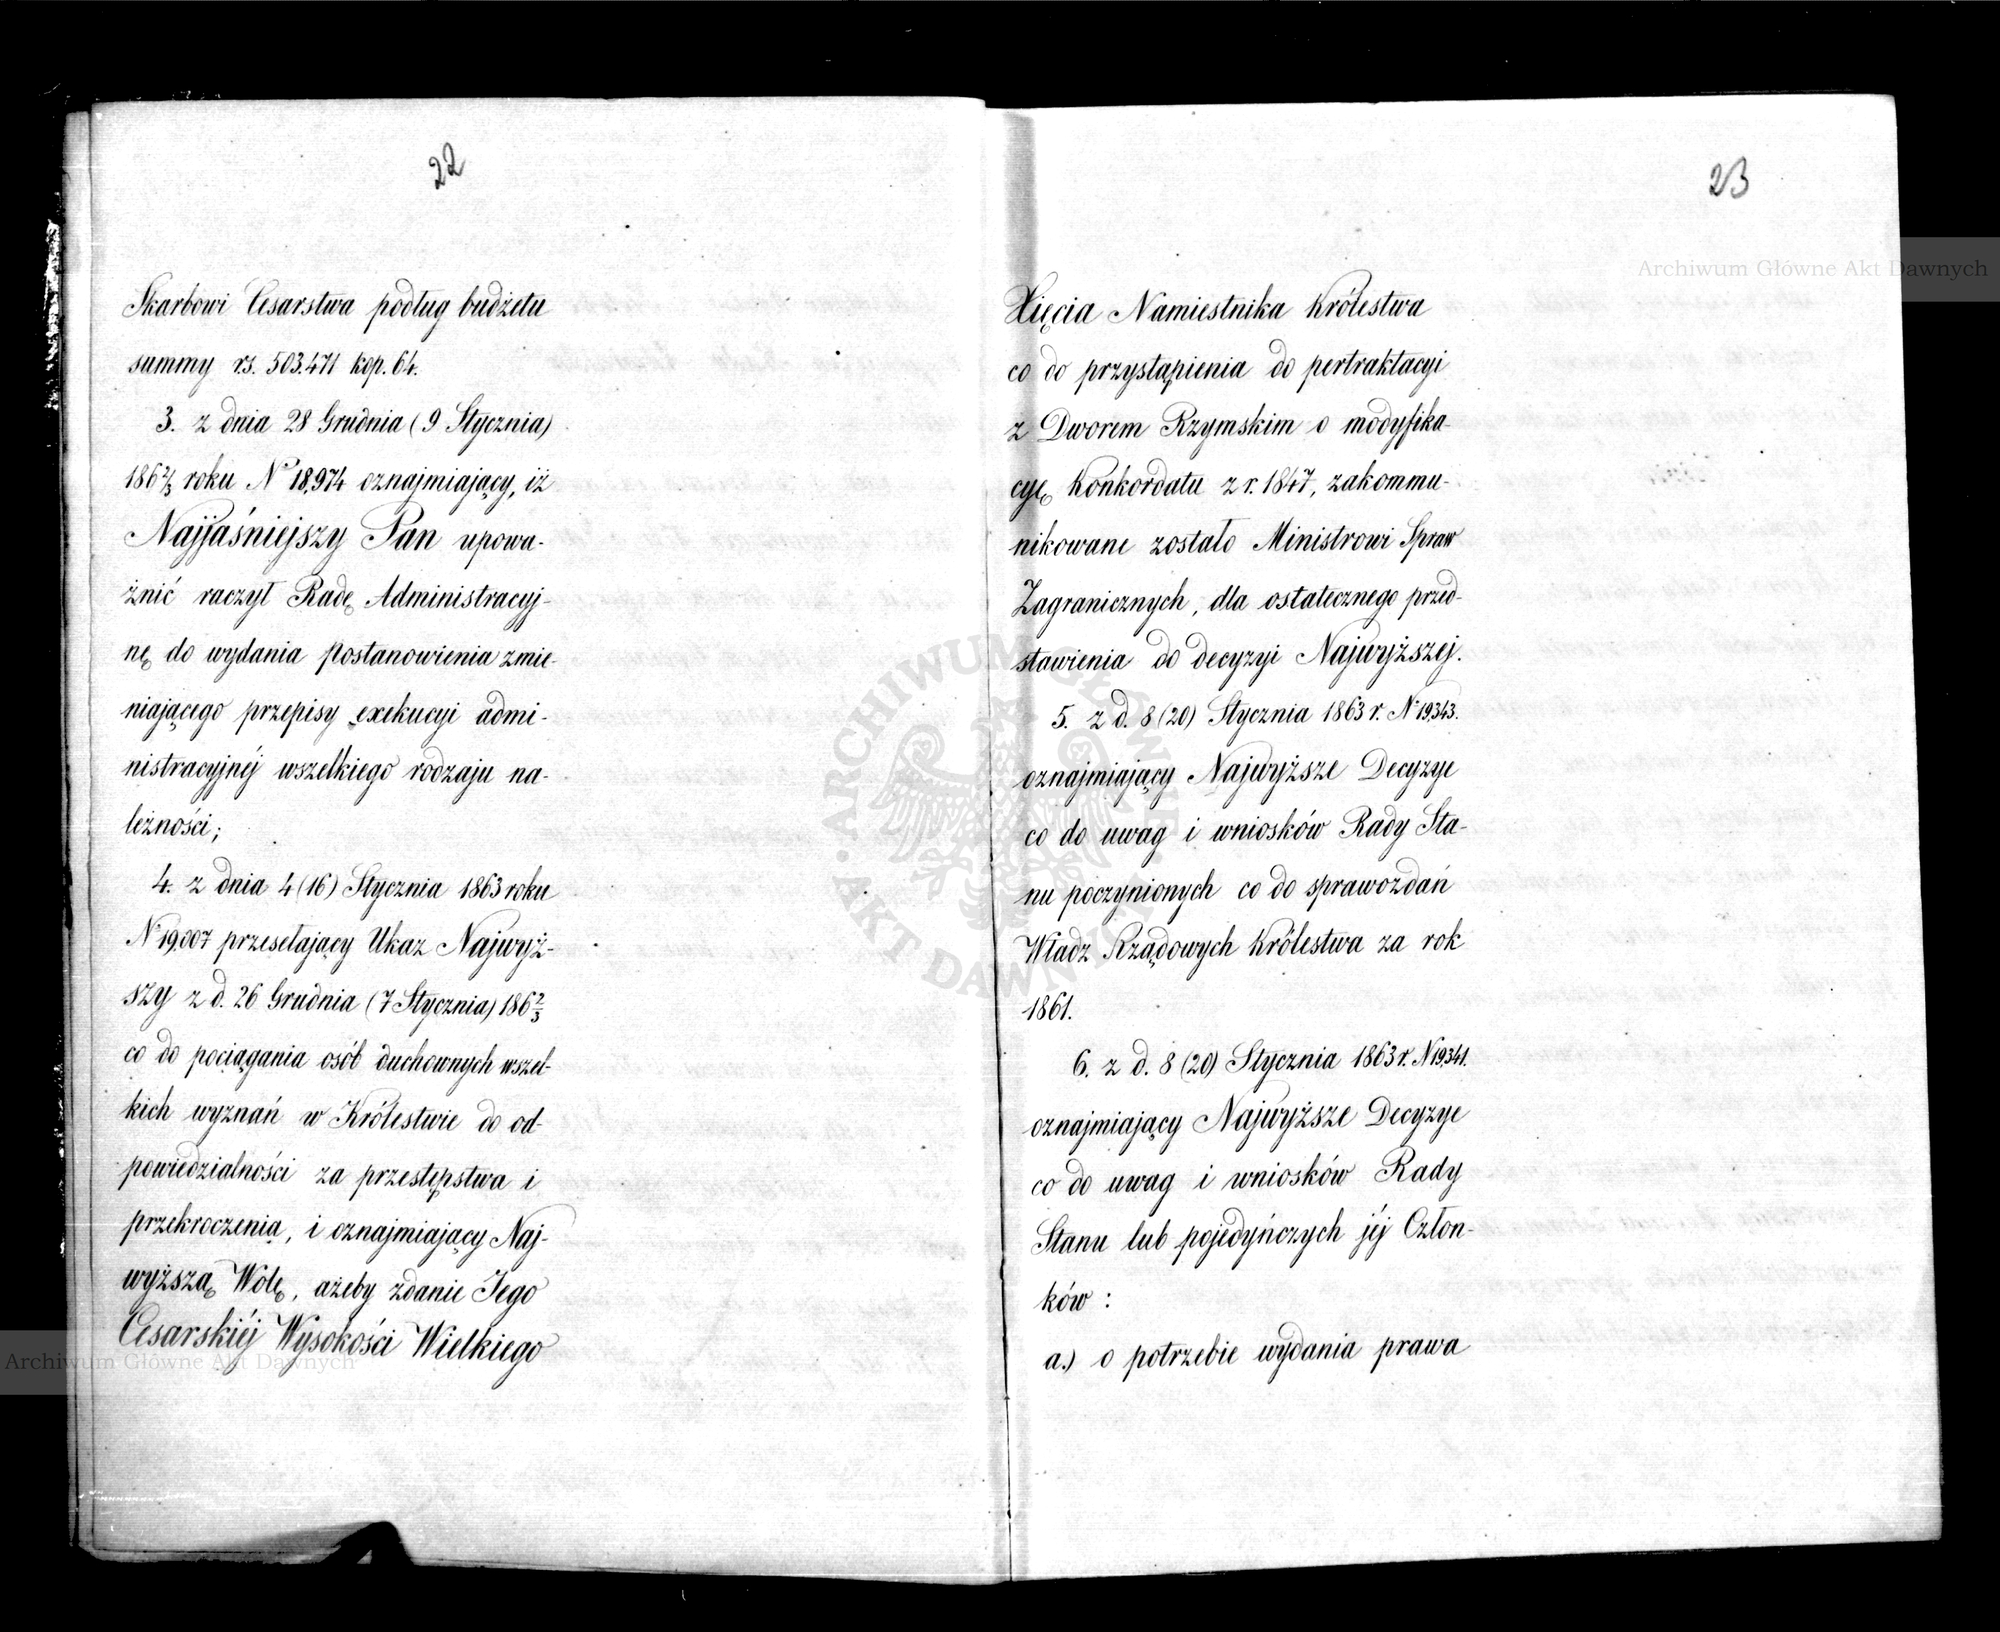 22
Skarbowi Cesarstwa podług budżetu
summy rs. 503.471 kop. 64.
3. z dnia 28 Grudnia (9 Stycznia)
186 2/3 roku No 18,974 oznajmiający, iż
Najjaśniejszy Pan upowa-
żnić raczył Radę Administracyj-
ną do wydania postanowienia zmie-
niającego przepisy exekucyi admi-
nistracyjnéj wszelkiego rodzaju na-
leżności;
4. z dnia 4 (16) Stycznia 1863 roku
N 19,007 przesełający Ukaz Najwyż-
szy z d. 26 Grudnia (7 Stycznia) 186 2/3
co do pociągania osób duchownych wszel-
kich wyznań w Królestwie do od-
powiedzialności za przestępstwa i
przekroczenia, i oznajmiający Naj-
wyższą Wolę, ażeby zdanie Jego
Cesarskiéj Wysokości Wielkiego
23
Xięcia Namiestnika Królestwa
co do przystąpienia do pertraktacyi
z Dworem Rzymskim o modyfika-
cyę Konkordatu z r. 1847, zakommu-
nikowane zostało Ministrowi Spraw
Zagranicznych, dla ostatecznego przed-
stawienia do decyzyi Najwyższej.
5. z d. 8 (20) Stycznia 1863 r. N 19,343.
oznajmiający Najwyższe Decyzye
co do uwag i wniosków Rady Sta-
nu poczynionych co do sprawozdań
Władz Rządowych Królestwa za rok
1861.
6. z d. 8 (20) Stycznia 1863 r. N 19,341.
oznajmiający Najwyższe Decyzye
co do uwag i wniosków Rady
Stanu lub pojedyńczych jéj Człon-
ków :
a.) o potrzebie wydania prawa
Archiwum Główne Akt Dawnych
Archiwum Główne Akt Dawnych
ARCHIWUM GŁÓWNE AKT DAWNYCH